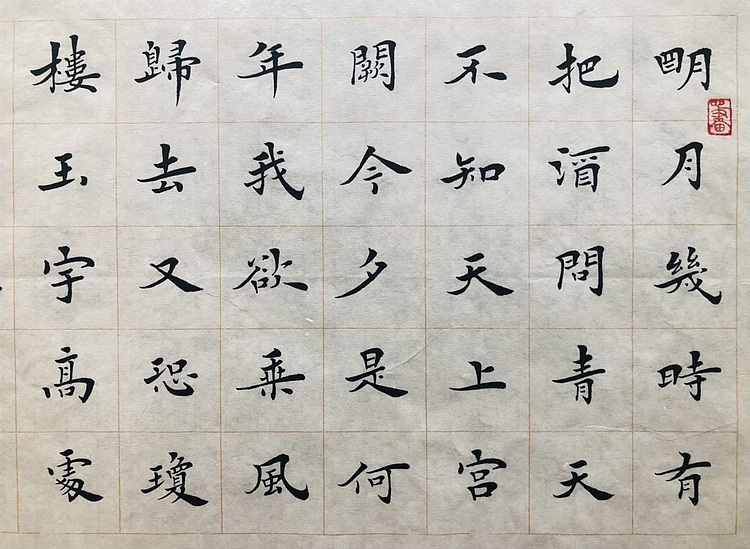 明月幾時有
把酒問青天
不知天上宮
闕今夕是何
年我欲乘風
歸去又恐瓊
樓玉宇高處